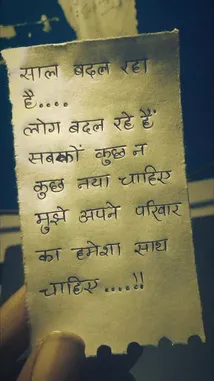 साल बदल रहा
है....
लोग बदल रहे हैं
सबकों कुछ न
कुछ नया चाहिए
मुझे अपने परिवार
का हमेशा साथ
चाहिए....!!